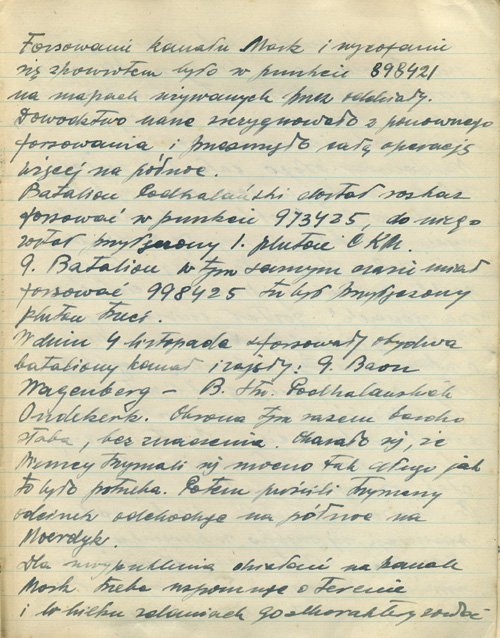 Forsowanie kanału Mark i wycofanie
się spowrotem było w punkcie 898421
na mapach używanych przez oddziały.
Dowództwo nasze zrezygnowało z ponownego
forsowania i przesunęło całą operację
więcej na północ.
Batalion Podhalański dostał rozkaz
forsować w punkcie 973425, do niego
został przydzielony 1. pluton C.K.M.
9. Batalion w tym samym czasie miał
forsować 998425 tu był przydzielony
pluton trzeci.
W dniu 4 listopada sforsowały obydwa
bataliony kanał i zajęły: 9. Baon
Wagenberg – B. Strz. Podhalańskich
Ondekerk. Obrona tym razem bardzo
słaba, bez znaczenia. Okazało się, że
Niemcy trzymali się mocno tak długo jak
to było potrzeba. Potem puścili trzymany
odcinek odchodząc na północ na
Moerdyk.
Dla uwypuklenia działań na kanale
Mark trzeba wspomnieć o terenie
i w kilku zdaniach go scharakteryzować